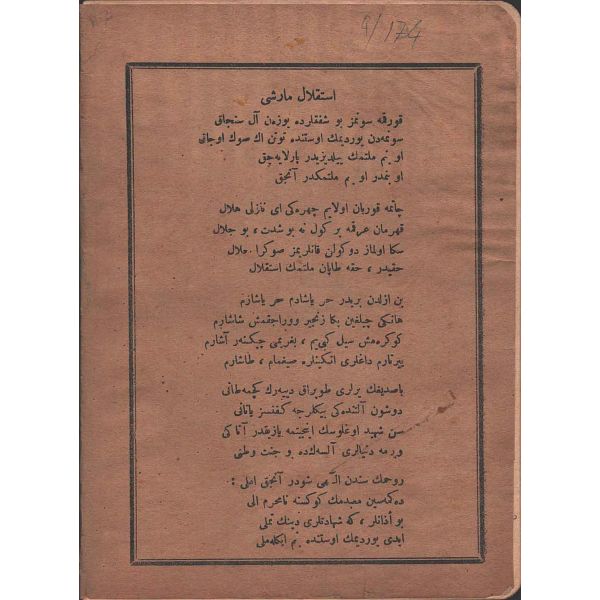 ٩/174
استقلال مارشی
قورقه سونمز بو شفقلرده یوزەن آل سنجاق
سونمەدن یوردیمك اوستنده توتن اك صوك اوجاق
او بنم ملتمك ییلدیزیدر پارلایەجق
او بنمدر او بنم ملتمكدر آنجق
چاتمه قوربان اولایم چهرەكی ای نازلی هلال
قهرمان عرقمه بر كول نه بو شدت ، بو جلال
سكا اولماز دوكولن قانلریمز صوكرا حلال
حقیدر ، حقه طاپان ملتمك استقلال
بن ازلدن بریدر حر یاشادم حر یاشارم
هانكی چیلغین بكا زنجیر ووراجقمش شاشارم
كوكرەمش سیل كبی‌یم ، بندیمی چیكنەر آشارم
ییرتارم داغلری انكینلره صیغمام ، طاشارم
باصدیغك یرلری طوپراق دییەرك كچمه طانی
دوشون آلتندەكی بیكلرجه كفنسز یاتانی
سن شهید اوغلوسك اینجیتمه یازیقدر آتاكی
ویرمه دنیالری آلسەك‌ده بو جنت وطنی
روحمك سندن الهی شودر آنجق املی :
دەكمەسین معبدمك كوكسنه نامحرم الی
بو أذانلر ، كه شهادتلری دینك تملی
ابدی یوردیمك اوستنده بنم ایكلەملی